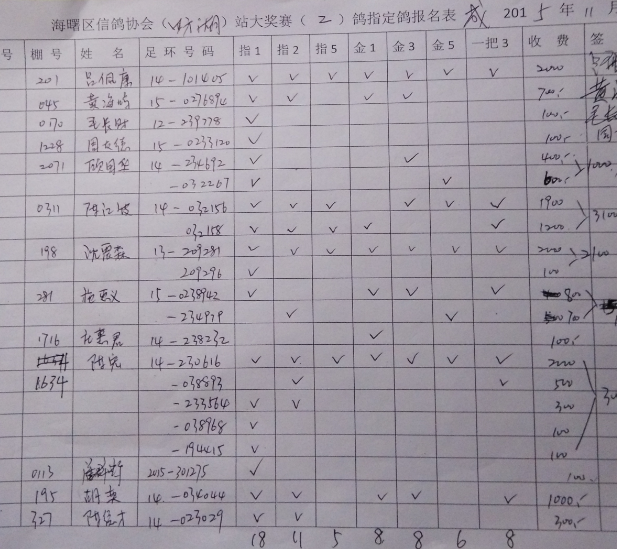 海曙区信鸽协会（ 湖）站大奖赛（2）鸽指定鸽报名表 成 2015年11月
号 棚号 姓名 足环号码 指1 指2 指5 金1 金3 金5 一把3 收费 签
201 吕佩康 14-101405 ✓ ✓ ✓ ✓ ✓ ✓ ✓ 2000
045 黄海鸣 15-0276894 ✓ ✓ ✓ ✓ 700.- 黄
0170 毛长财 12-239778 ✓ 100.- 毛长
1228 周 15-0233120 ✓ 100.- 周
2071 欧国华 14-234692 ✓ ✓ 400.-
-032267 ✓ ✓ 600.- 1000
0311 陈江波 14-032156 ✓ ✓ ✓ ✓ ✓ ✓ 1900
032158 ✓ ✓ ✓ ✓ ✓ 1200 3100
198 沈 森 13-209281 ✓ ✓ ✓ ✓ ✓ ✓ ✓ 2000 2100
209296 ✓ 100
281 义 15-0238942 ✓ ✓ ✓ ✓ 800
-234979 ✓ ✓ 70
1716 14-238232 ✓ 100.-
陈 14-230616 ✓ ✓ ✓ ✓ ✓ ✓ ✓ 2000
1634 -038893 ✓ ✓ 500
-233564 ✓ ✓ 300
-038968 ✓ 100
-194415 ✓ 100
0113 2015-301275 ✓ 100.-
195 胡 14-034044 ✓ ✓ ✓ ✓ ✓ 1000.-
327 陈 才 14-023029 ✓ ✓ 300.-
18 11 5 8 8 6 8